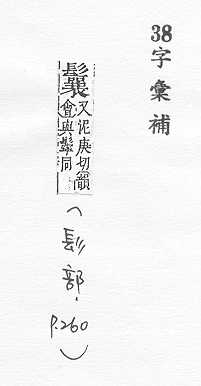 38字彙補
鬤
又泥庚切韻
會與鬡同
(髟部. P.260)